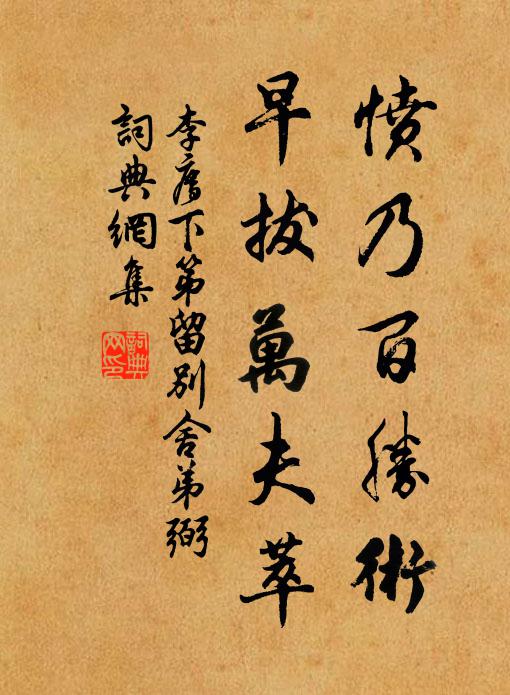 憤乃百勝術
早拔萬夫萃
李廌下第留別舍弟弼
詞典網集
詞典
网印